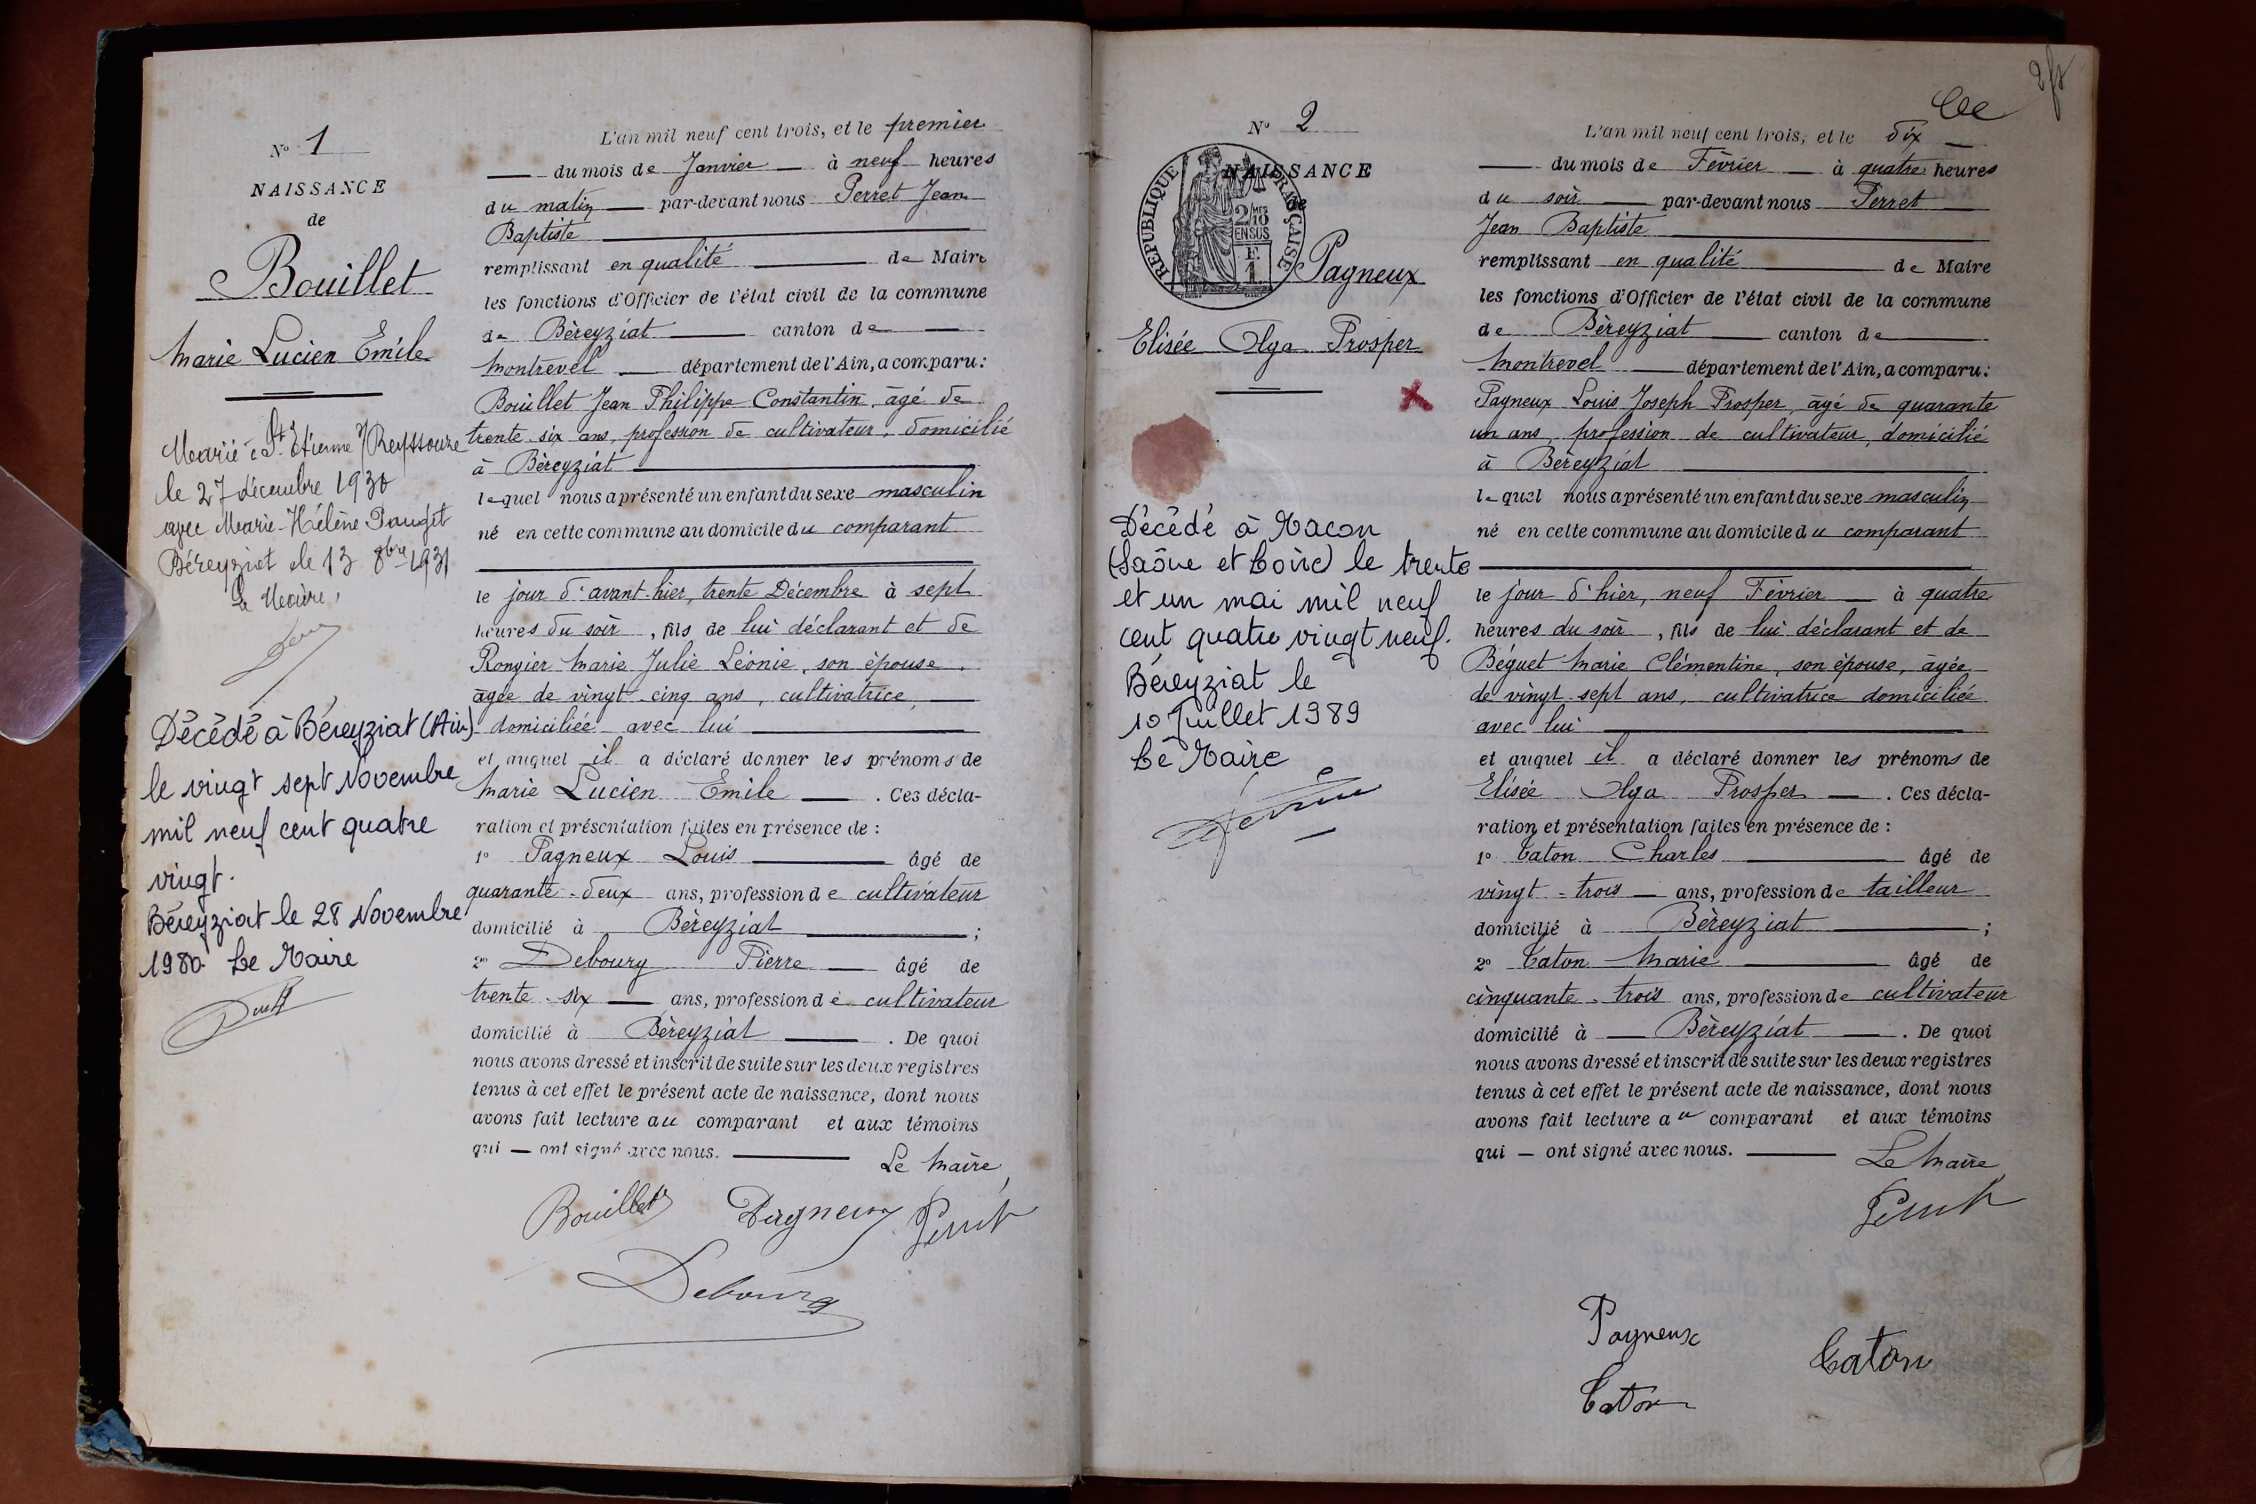 N° 1
NAISSANCE
de
Bouillet
Marie Lucien Emile
Marié à St Etienne s/ Reyssouze
le 27 décembre 1930
avec Marie-Hélène Pauget
Béreyziat le 13 8bre 1931
Le Maire,
Décédé à Béreyziat (Ain)
le vingt sept Novembre
mil neuf cent quatre
vingt.
Béreyziat le 28 Novembre
1980 Le Maire
L'an mil neuf cent trois, et le premier
du mois de Janvier à neuf heures
du matin par-devant nous Perret Jean
Baptiste
remplissant en qualité de Maire
les fonctions d'Officier de l'état civil de la commune
de Bèreyziat canton de
Montrevel département de l'Ain, a comparu:
Bouillet Jean Philippe Constantin, âgé de
trente six ans, profession de cultivateur, domicilié
à Bèreyziat
lequel nous a présenté un enfant du sexe masculin
né en cette commune au domicile du comparant
le jour d'avant-hier, trente Décembre à sept
heures du soir, fils de lui déclarant et de
Rongier Marie Julie Léonie, son épouse,
âgée de vingt-cinq ans, cultivatrice,
domiciliée avec lui
et auquel il a déclaré donner les prénoms de
Marie Lucien Emile. Ces décla-
ration et présentation faites en présence de :
1° Pagneux Louis âgé de
quarante-deux ans, profession de cultivateur
domicilié à Bèreyziat ;
2° Debourg Pierre âgé de
trente-six ans, profession de cultivateur
domicilié à Bèreyziat. De quoi
nous avons dressé et inscrit de suite sur les deux registres
tenus à cet effet le présent acte de naissance, dont nous
avons fait lecture au comparant et aux témoins
qui — ont signé avec nous.
Le Maire,
Bouillet Pagneux Perret
Debourg
N° 2
NAISSANCE
de
REPUBLIQUE FRANÇAISE
2/10
EN SUS
F.
1.
Pagneux
Elisée Olga Prosper
Décédé à Macon
(Saône et Loire) le trente
et un mai mil neuf
cent quatre vingt neuf.
Béreyziat le
10 Juillet 1989
Le Maire
L'an mil neuf cent trois, et le dix
du mois de Février à quatre heures
du soir par-devant nous Perret
Jean Baptiste
remplissant en qualité de Maire
les fonctions d'Officier de l'état civil de la commune
de Bèreyziat canton de
Montrevel département de l'Ain, a comparu:
Pagneux Louis Joseph Prosper, âgé de quarante
un ans, profession de cultivateur, domicilié
à Bèreyziat
lequel nous a présenté un enfant du sexe masculin
né en cette commune au domicile du comparant
le jour d'hier, neuf Février à quatre
heures du soir, fils de lui déclarant et de
Béguet Marie Clémentine, son épouse, âgée
de vingt sept ans, cultivatrice domiciliée
avec lui
et auquel il a déclaré donner les prénoms de
Elisée Olga Prosper. Ces décla-
ration et présentation faites en présence de :
1° Caton Charles âgé de
vingt-trois ans, profession de tailleur
domicilié à Bèreyziat ;
2° Caton Marie âgé de
cinquante-trois ans, profession de cultivateur
domicilié à Bèreyziat. De quoi
nous avons dressé et inscrit de suite sur les deux registres
tenus à cet effet le présent acte de naissance, dont nous
avons fait lecture au comparant et aux témoins
qui — ont signé avec nous.
Le Maire
Perret
Pagneux
Caton
Caton